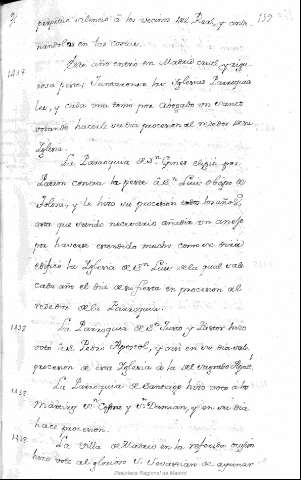 perpetuo silencio á los vecinos del Real, y conti-
nuandolas en las
139
1437
Este año entró en Madrid cruel, y rigu-
rosa peste; Juntaronse las Iglesias Parroquia
les, y cada una tomó por Abogado un Santo
votando hacerle su dia procesion al rededor de su
Iglesia.
La Parroquia de Sn. Gines eligió por
Patron contra la peste á Sn. Luis Obispo de
Tolosa, y le hizo su procesion todos los años,
asta que siendo necesario añadir un anejo
por haverse estendido mucho como se diria
edificó la Iglesia de Sn. Luis, de la qual sale
cada año el dia de su fiesta en procesion al
rededor de la Parroquia.
1438
La Parroquia de Sn. Justo y Pastor hizo
voto á Sn. Pedro Apostol, y asi en su dia sale
procesion de esta Iglesia á la del sagrado Apost.
1438
La Parroquia de Santiago hizo voto á los
Martires Sn. Cosme y Sn. Damian, y en su dia
hace procesion.
1438
La Villa de Madrid en la referida ocasion
hizo voto al glorioso S. Sevastian de ayunar
Biblioteca Regional de Madrid